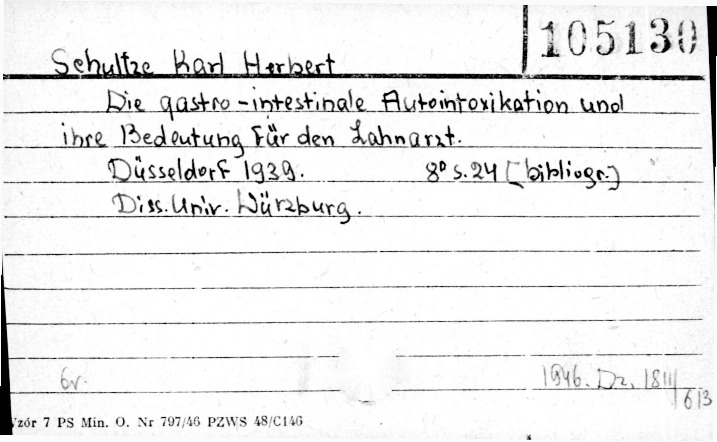 105130
Schultze Karl Herbert
Die gastro-intestinale Autointoxikation und
ihre Bedeutung für den Zahnarzt.
Düsseldorf 1939. 8° s. 24 [bibliogr.]
Diss. Univ. Würzburg.
1946. Dz. 1811/613
Wzór 7 PS Min. O. Nr 797/46 PZWS 48/C146